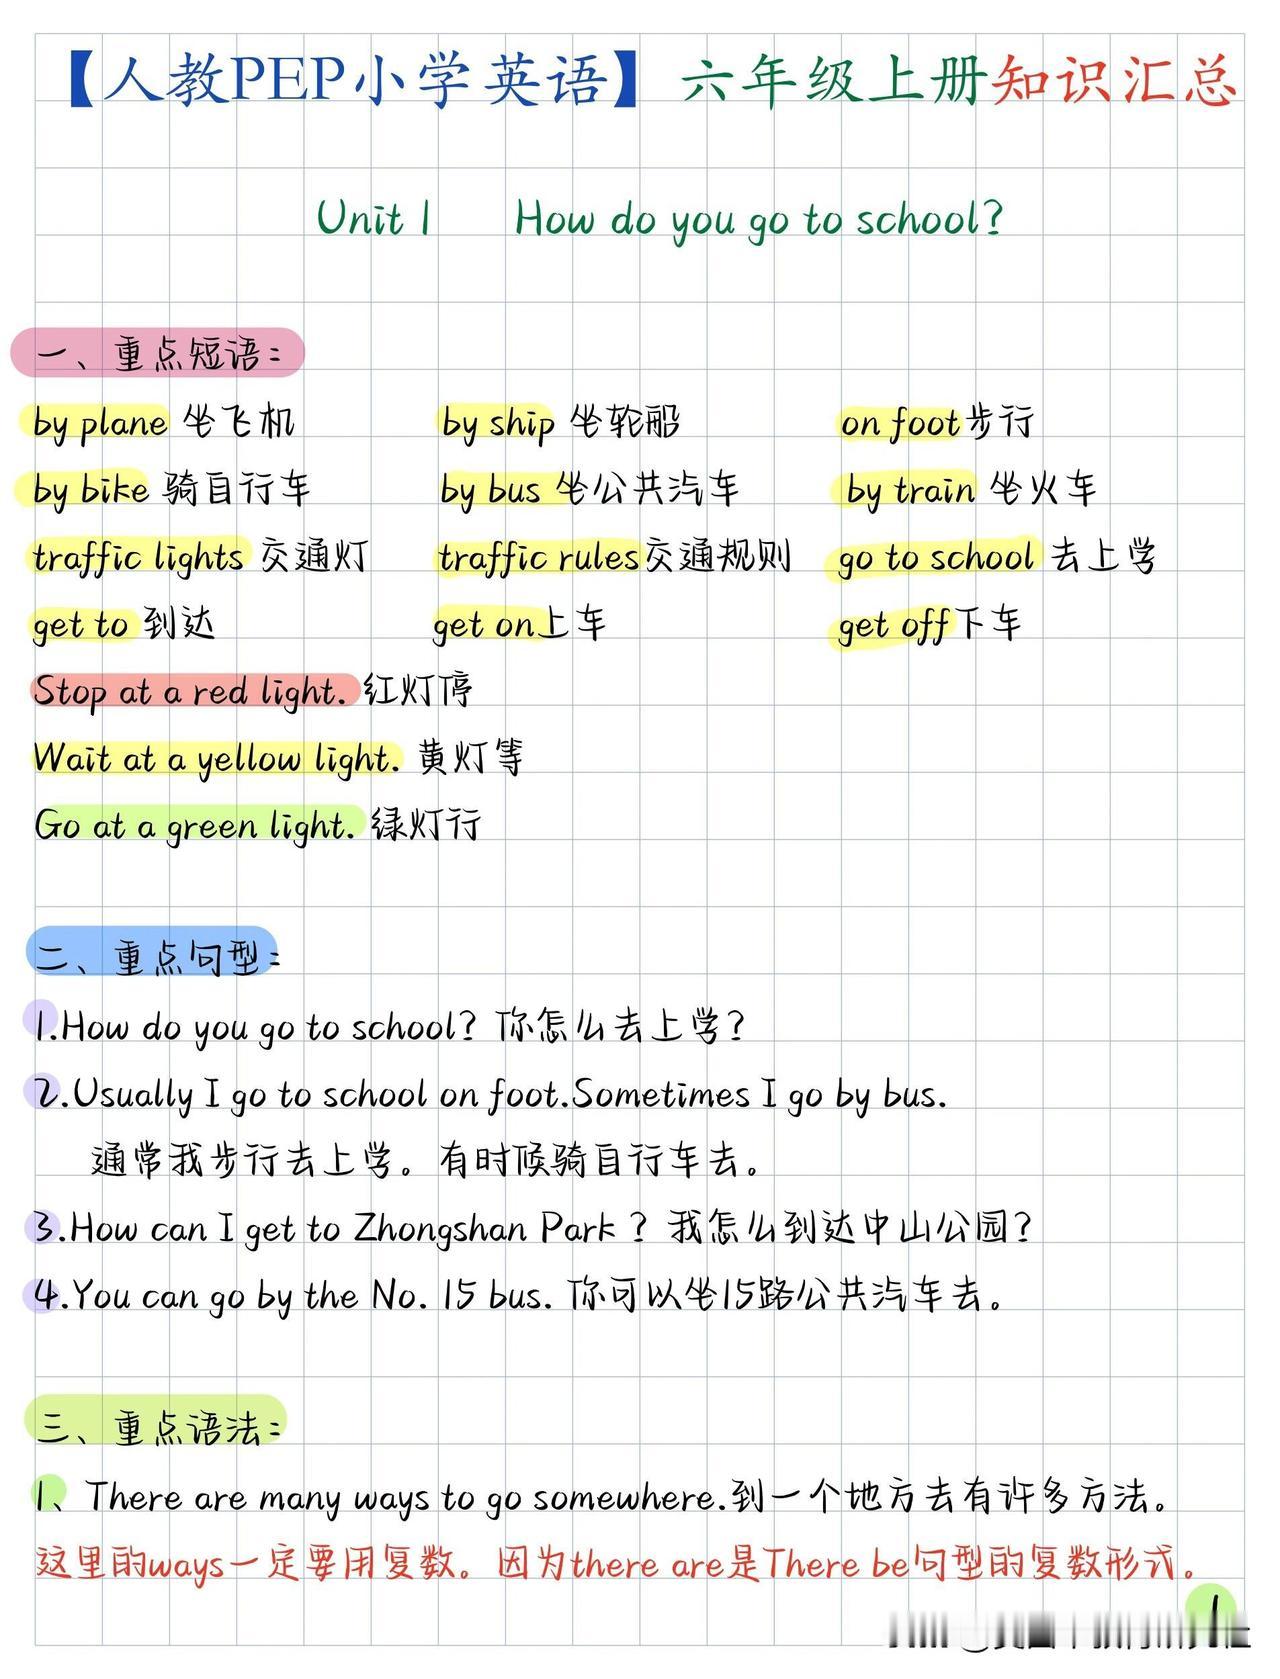 【人教PEP小学英语】 六年级上册知识汇总
Unit 1 How do you go to school?
一、重点短语：
by plane 坐飞机 by ship 坐轮船 on foot步行
by bike 骑自行车 by bus 坐公共汽车 by train 坐火车
traffic lights 交通灯 traffic rules交通规则 go to school 去上学
get to 到达 get on上车 get off下车
Stop at a red light. 红灯停
Wait at a yellow light. 黄灯等
Go at a green light. 绿灯行
二、重点句型：
1.How do you go to school? 你怎么去上学?
2.Usually I go to school on foot.Sometimes I go by bus.
通常我步行去上学。有时候骑自行车去。
3.How can I get to Zhongshan Park ? 我怎么到达中山公园?
4.You can go by the No. 15 bus. 你可以坐15路公共汽车去。
三、重点语法：
1、There are many ways to go somewhere.到一个地方去有许多方法。
这里的ways一定要用复数。因为there are是There be句型的复数形式。
1